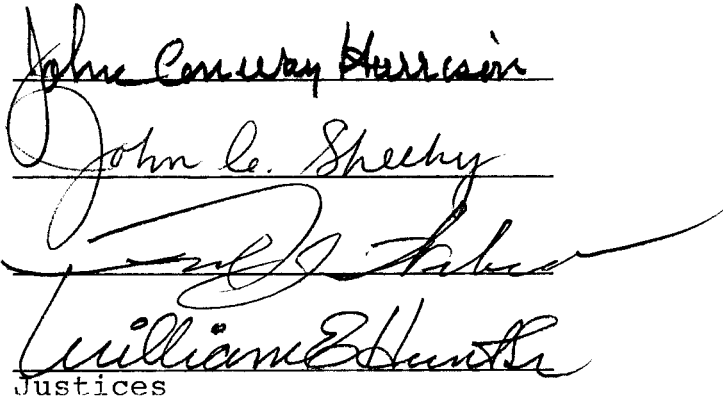 John Conway Harrison
John C. Sheehy
Fred J. Weber
William E. Hunt Sr.
Justices